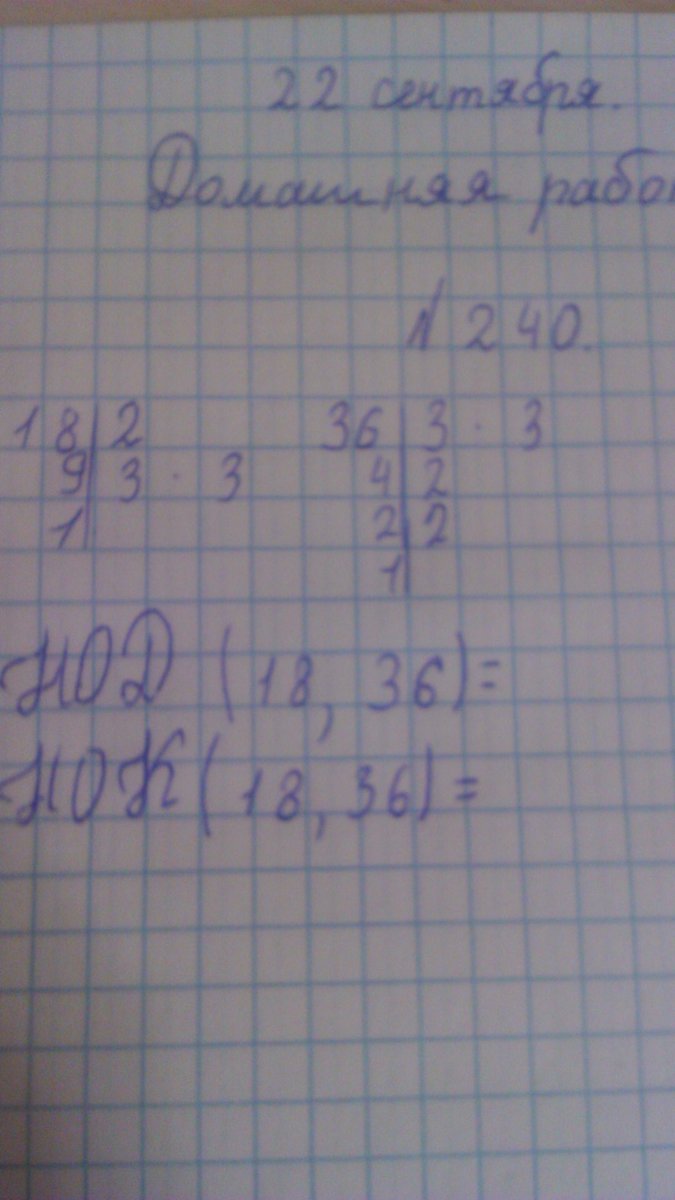 22 сентября.
Домашняя
№ 240.
18 | 2 36 | 3 · 3
9 | 3 · 3 4 | 2
1 | 2 | 2
1 |
НОД (18, 36) =
НОК (18, 36) =